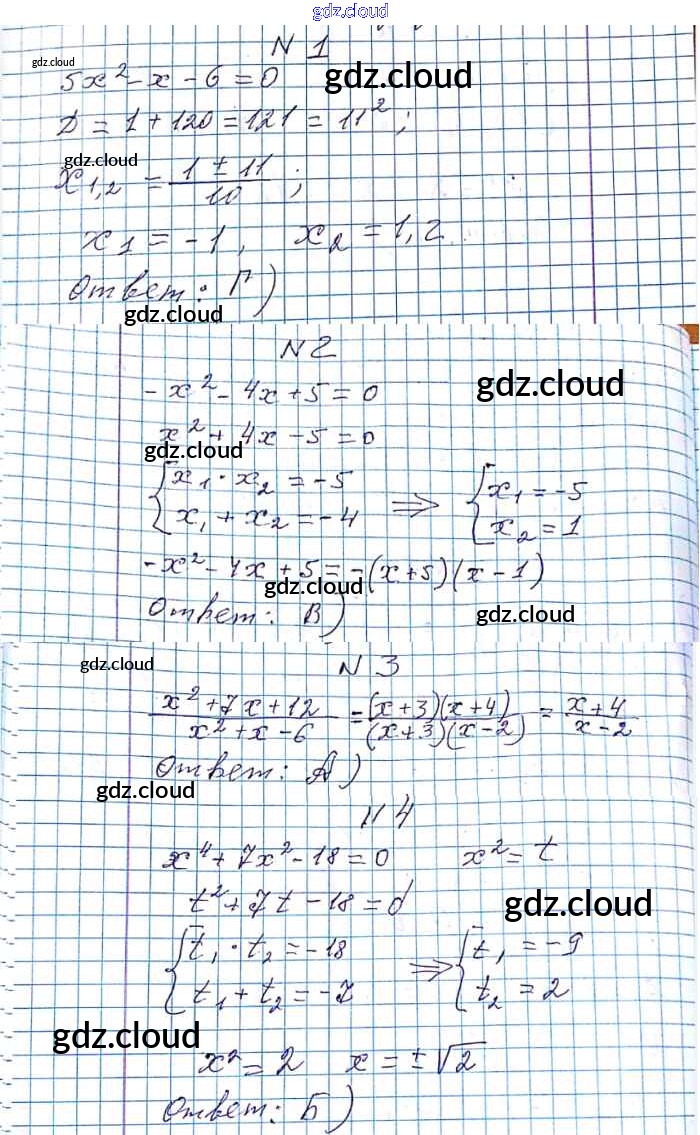 gdz.cloud
N 1
gdz.cloud
5x² - x - 6 = 0
gdz.cloud
D = 1 + 120 = 121 = 11²;
gdz.cloud
x₁,₂ = (1 ± 11)/10;
x₁ = -1, x₂ = 1,2.
Ответ: Г)
gdz.cloud
N 2
-x² - 4x + 5 = 0
gdz.cloud
x² + 4x - 5 = 0
gdz.cloud
{ x₁ · x₂ = -5 ⇒ [ x₁ = -5
{ x₁ + x₂ = -4 [ x₂ = 1
-x² - 4x + 5 = -(x+5)(x-1)
gdz.cloud
Ответ: В)
gdz.cloud
N 3
gdz.cloud
(x² + 7x + 12)/(x² + x - 6) = (x+3)(x+4)/(x+3)(x-2) = (x+4)/(x-2)
Ответ: А)
gdz.cloud
N 4
x⁴ + 7x² - 18 = 0 x² = t
t² + 7t - 18 = 0
gdz.cloud
{ t₁ · t₂ = -18 ⇒ [ t₁ = -9
{ t₁ + t₂ = -7 [ t₂ = 2
gdz.cloud
x² = 2 x = ±√2
Ответ: Б)